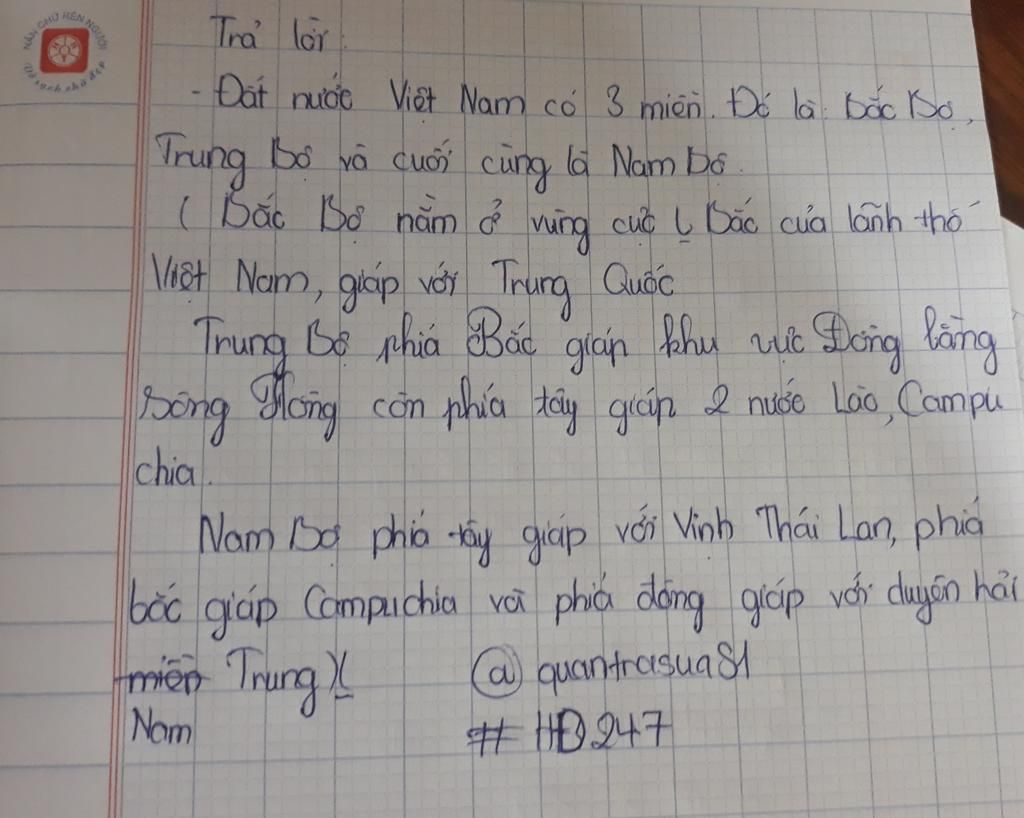 NẮN CHỮ RÈN NGƯỜI
Vở sạch chữ đẹp
Trả lời:
- Đất nước Việt Nam có 3 miền. Đó là: Bắc Bộ,
Trung Bộ và cuối cùng là Nam Bộ.
( Bắc Bộ nằm ở vùng cực Bắc của lãnh thổ
Việt Nam, giáp với Trung Quốc
Trung Bộ phía Bắc giáp khu vực Đồng bằng
Sông Hồng còn phía tây giáp 2 nước Lào, Campu
chia.
Nam Bộ phía tây giáp với Vịnh Thái Lan, phía
bắc giáp Campuchia và phía đông giáp với duyên hải
miền Trung )
Nam
@quantrasua81
# HĐ247